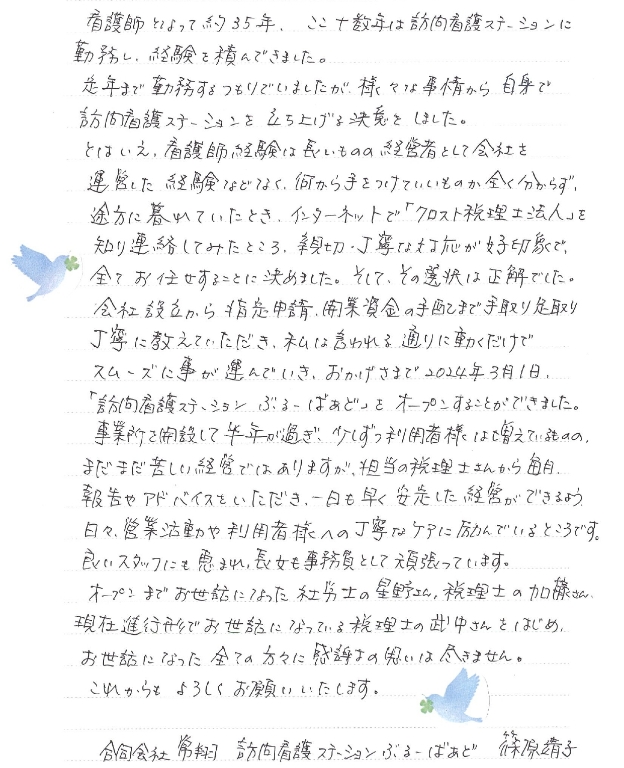 看護師となって約35年、ここ十数年は訪問看護ステーションに
勤務し、経験を積んできました。
定年まで勤務するつもりでいましたが、様々な事情から自身で
訪問看護ステーションを立ち上げる決意をしました。
とはいえ、看護師経験は長いものの経営者として会社を
運営した経験などなく、何から手をつけていいものか全く分からず、
途方に暮れていたとき、インターネットで「クロスト税理士法人」を
知り連絡してみたところ、親切・丁寧な対応が好印象で、
全てお任せすることに決めました。そして、その選択は正解でした。
会社設立から指定申請、開業資金の手配まで手取り足取り
丁寧に教えていただき、私は言われる通りに動くだけで
スムーズに事が運んでいき、おかげさまで2024年3月1日、
「訪問看護ステーション ぶるーばぁど」をオープンすることができました。
事業所を開設して半年が過ぎ、少しずつ利用者様は増えているものの、
まだまだ苦しい経営ではありますが、担当の税理士さんから毎月、
報告やアドバイスをいただき、一日も早く安定した経営ができるよう
日々、営業活動や利用者様への丁寧なケアに励んでいるところです。
良いスタッフにも恵まれ、長女も事務員として頑張っています。
オープンまでお世話になった社労士の星野さん、税理士の加藤さん、
現在進行形でお世話になっている税理士の武中さんをはじめ、
お世話になった全ての方々に感謝の思いは尽きません。
これからもよろしくお願いいたします。
合同会社 常翔 訪問看護ステーションぶるーばぁど 篠原靖子